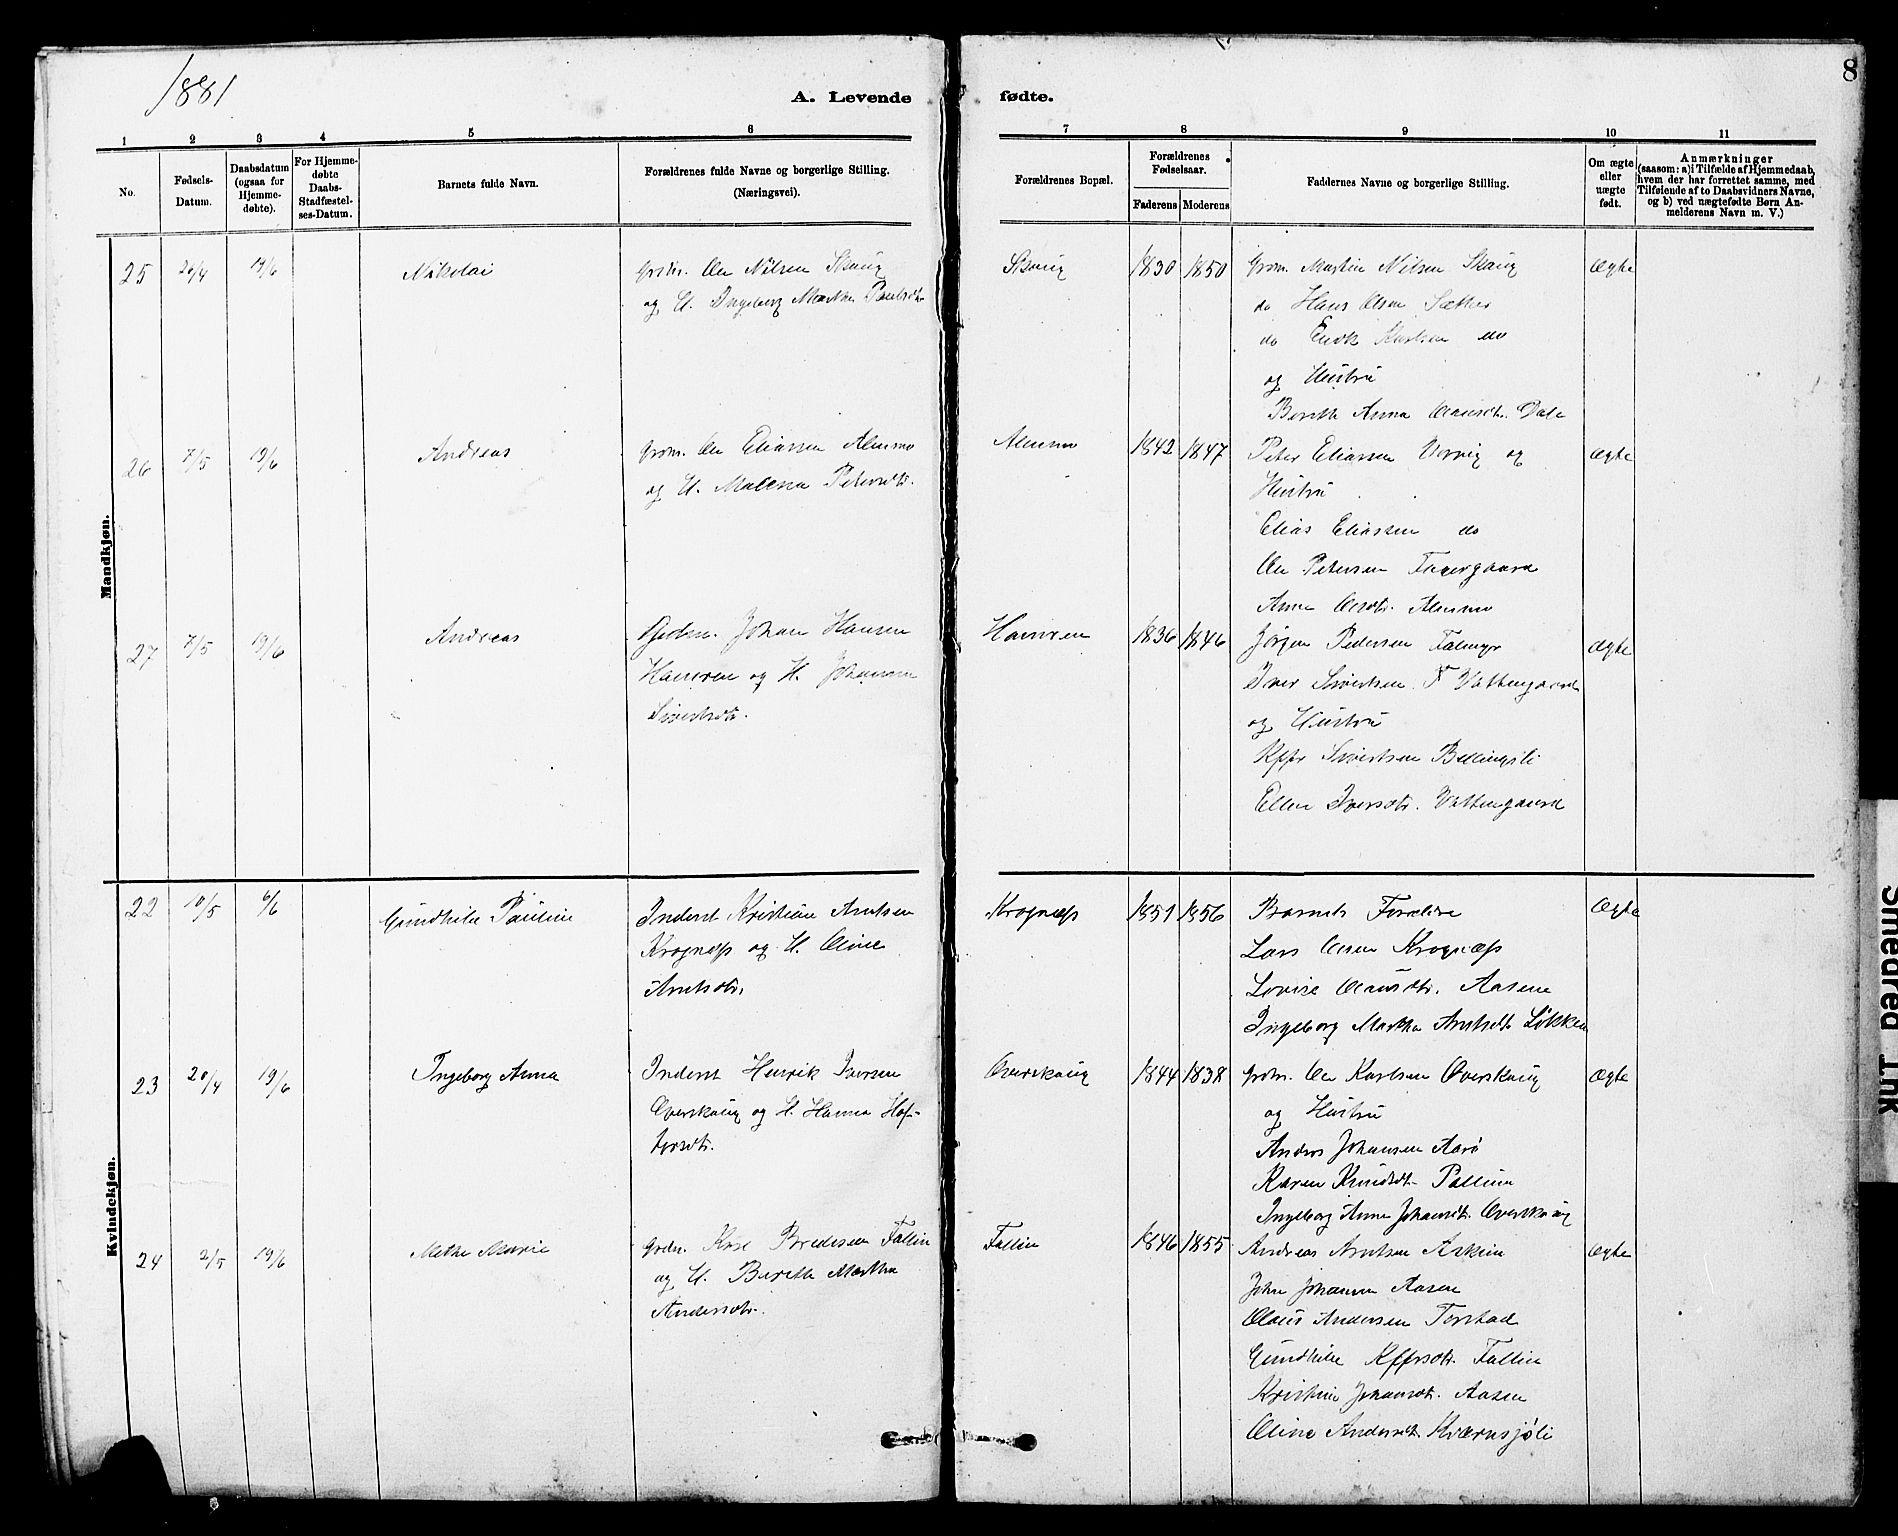 1881
A. Levende fødte.
8
1 2 3 4 5 6 7 8 9 10 11
No.
Fødsels-Datum.
Daabsdatum (ogsaa for Hjemme-døbte).
For Hjemme-døbte Daabs-Stadfæstel-ses-Datum.
Barnets fulde Navn.
Forældrenes fulde Navne og borgerlige Stilling. (Næringsvei).
Forældrenes Bopæl.
Forældrenes Fødselsaar.
Faderens Moderens
Faddernes Navne og borgerlige Stilling.
Om ægte eller uægte født.
Anmærkninger
(saasom: a) i Tilfælde af Hjemmedaab,
hvem der har forrettet samme, med
Tilføiende af to Daabsvidners Navne,
og b) ved uægtefødte Børn An-
melderens Navn m. V.)
Mandkjøn.
25 20/4 19/6 Nikolai
Grdm. Ole Nilsen Skaug
og H. Ingeborg Martha Paulsdtr
Skaug 1830 1850
Grdm. Martin Nilsen Skaug
do Hans Olsen Sæther
do Karlsen do
og Hustru
Bereth Anna Olausdt. Dale
Ægte
26 7/5 19/6 Andreas
Grdm. Ole Eliassen Almmo
og H. Malena Petersdtr.
Almmo 1842 1847
Peter Eliassen og
Hustru
Elias Eliassen do
Ole Petersen Fagergaard
Anne Olsdtr. Almmo
Ægte
27 7/5 19/6 Andreas
Gjdm. Johan Hansen
Hamren og H. Johanna
Sivertsdtr.
Hamren 1836 1846
Jørgen Pedersen Falmyr
Iver Sivertsen F Vattengaard
og Hustru
Kffr Sivertsen Bellingsli
Ellen Iversdtr. Vattengaard
Ægte
Kvindekjøn.
22 10/5 6/6 Gundhilde Pauline
Inderst Kristian Arntsen
Krognæss og H. Oline
Arntsdtr.
Krognæss 1851 1856
Barnets Forældre
Lars Olsen Krognæss
Lovise Olausdtr. Aasene
Ingeborg Martha Arntsdt Løkken
Ægte
23 20/4 19/6 Ingeborg Anna
Inderst Henrik Iversen
Overskaug og H. Hanna Haf-
torsdtr.
Overskaug 1844 1838
Grdm. Ole Karlsen Overskaug
og Hustru
Anders Johansen Aarø
Karen Knudsdt. Fallin
Ingeborg Anne Johansdt. Overskaug
Ægte
24 2/5 19/6 Mette Marie
Grdm. Bredesen Fallin
og H. Bereth Martha
Andersdtr.
Fallin 1846 1855
Andreas Arntsen Askim
John Johansen Aasen
Olaus Andersen Forstad
Gundhilde Kffrsdt. Fallin
Kristine Johansdt. Aasen
Oline Andersdt. Kværnsjøli
Ægte
Smeared Ink